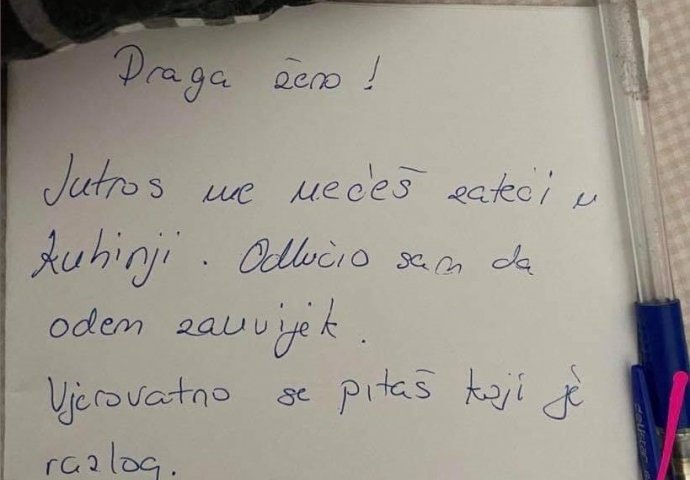 Draga ženo!
Jutros me nećeš zateći u
kuhinji. Odlučio sam da
odem zauvijek.
Vjerovatno se pitaš koji je
razlog.